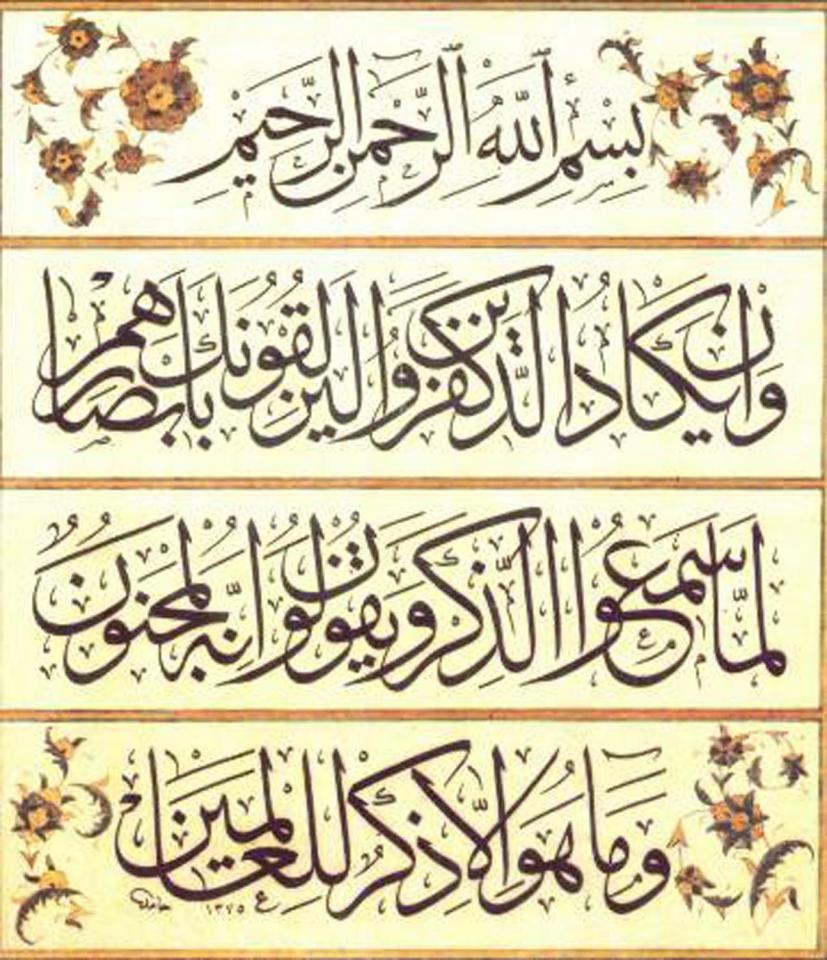 بِسْمِ ٱللّٰهِ ٱلرَّحْمٰنِ ٱلرَّحِيمِ
وَاِنْ يَكَادُ الَّذِينَ كَفَرُوا لَيُزْلِقُونَكَ بِاَبْصَارِهِمْ
لَمَّا سَمِعُوا الذِّكْرَ وَيَقُولُونَ اِنَّهُ لَمَجْنُونٌ
وَمَا هُوَ اِلَّا ذِكْرٌ لِلْعَالَمِينَ
حامد ١٣٧٥